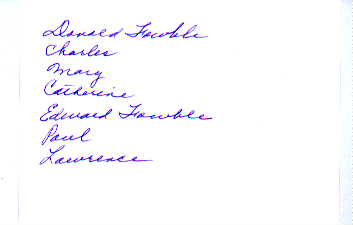 Donald Fowble
Charles
Mary
Catherine
Edward Fowble
Paul
Lawrence